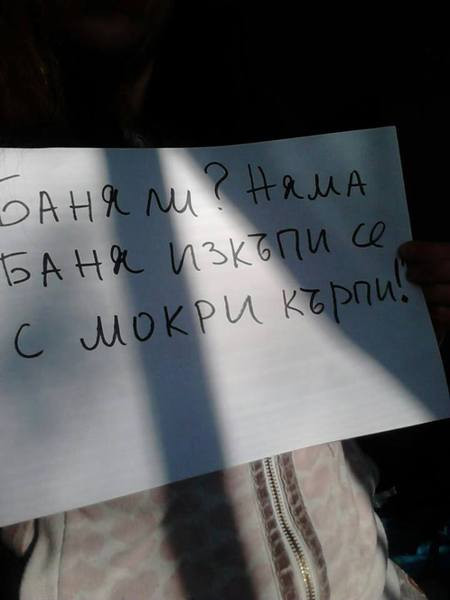 БАНЯ ЛИ? НЯМА
БАНЯ ИЗКЪПИ СЕ
С МОКРИ КЪРПИ!